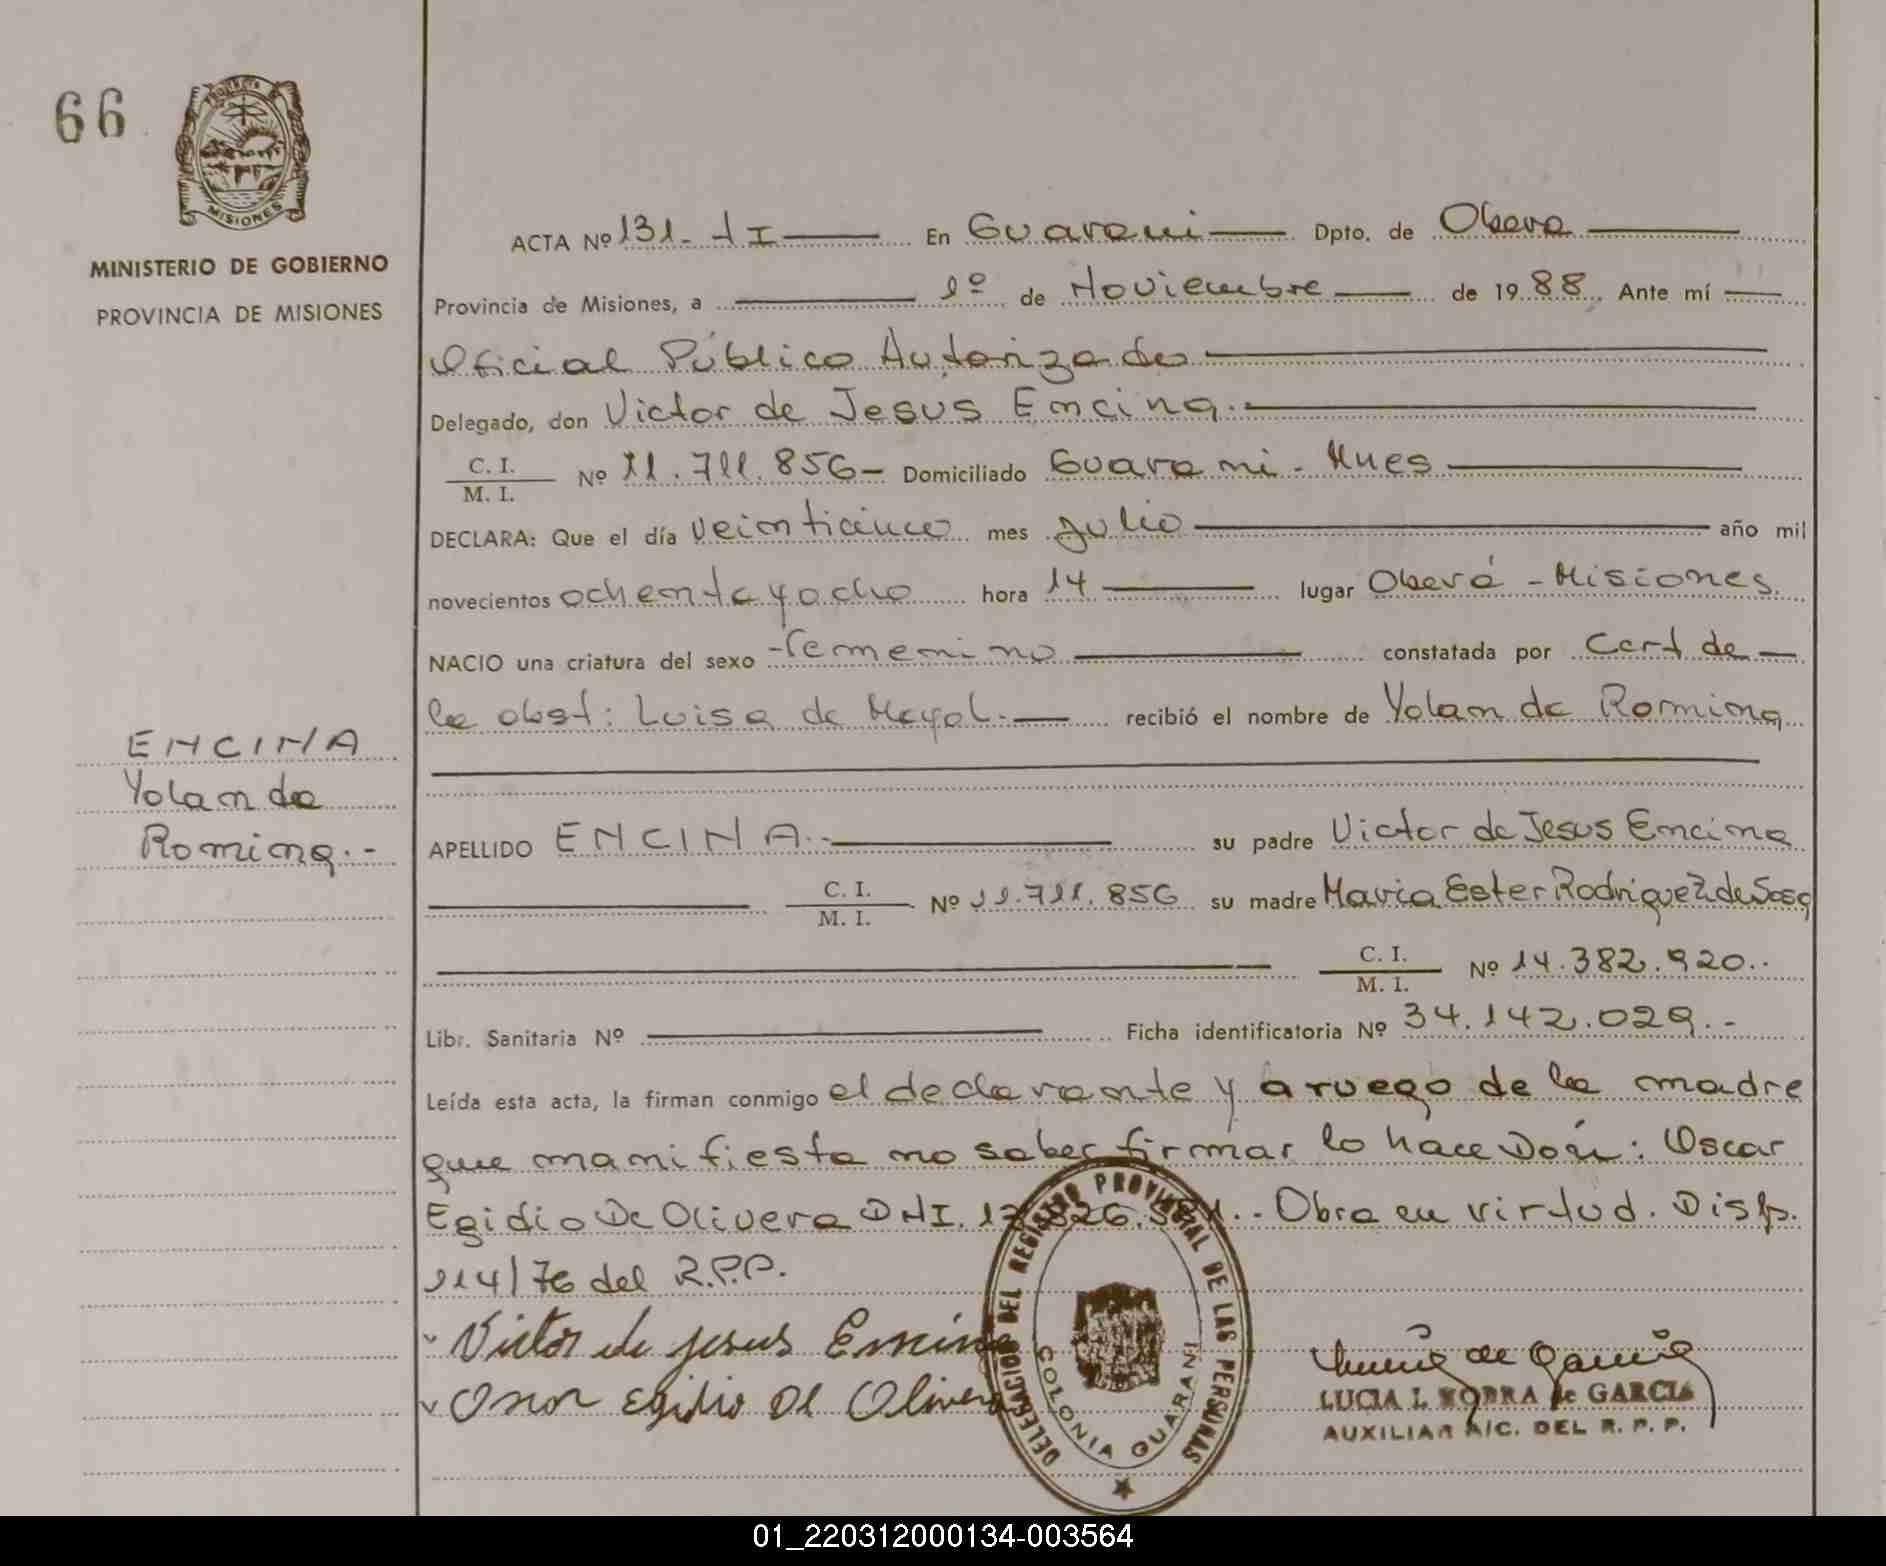 66
PROVINCIA DE
MISIONES
MINISTERIO DE GOBIERNO
PROVINCIA DE MISIONES
ACTA Nº 131.-tI En Guarani Dpto. de Obera
Provincia de Misiones, a 1º de Noviembre de 1988 Ante mí
Oficial Público Autorizado
Delegado, don Victor de Jesus Encina.-
C. I.
M. I. Nº 11.711.856- Domiciliado Guarani - Mnes
DECLARA: Que el día veinticinco mes julio año mil
novecientos ochentayocho hora 14 lugar Oberá - Misiones
NACIO una criatura del sexo femenino constatada por Cert de
la obst: Luisa de Mayol.- recibió el nombre de Yolanda Romina
ENCINA
Yolanda
Romina.-
APELLIDO ENCINA.- su padre Victor de Jesus Encina
C. I.
M. I. Nº 11.711.856 su madre Maria Ester Rodriguez de Sosa
C. I.
M. I. Nº 14.382.920..
Libr. Sanitaria Nº Ficha identificatoria Nº 34.142.029.-
Leída esta acta, la firman conmigo el declarante y a ruego de la madre
que manifiesta no saber firmar lo hace Don: Oscar
Egidio De Olivera DNI. Obra en virtud. Disp.
114/76 del R.P.P.
Victor de jesus Encina
Oscar Egidio De Olivera
DELEGACION DEL REGISTRO PROVINCIAL DE LAS PERSONAS
COLONIA GUARANI
LUCIA I. de GARCIA
AUXILIAR A/C. DEL R. P. P.
01_220312000134-003564